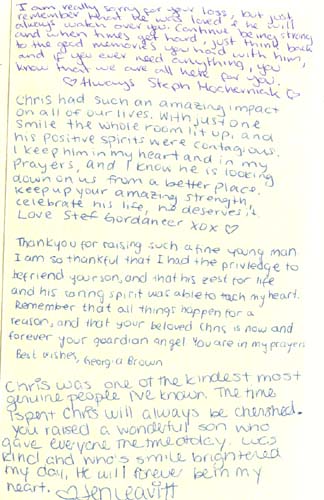 I am really sorry for your loss, but just
remember that he was loved & he will
always watch over you. Continue being strong
and when times get hard, just think back
to the good memories you had with him,
and if you ever need anything, you
know that we are all here for you.
♡ Always Steph Mochernick ♡
Chris had such an amazing impact
on all of our lives. With just one
smile the whole room lit up, and
his positive spirits were contagious.
I keep him in my heart and in my
prayers, and I know he is looking
down on us from a better place.
Keep up your amazing strength,
celebrate his life, he deserves it.
Love Stef Gordaneer XOX ♡
Thankyou for raising such a fine young man
I am so thankful that I had the priviledge to
befriend your son, and that his zest for life
and his caring spirit was able to touch my heart.
Remember that all things happen for a
reason, and that your beloved Chris is now and
forever your guardian angel. You are in my prayers
Best wishes, Georgia Brown
Chris was one of the kindest most
genuine people I've known. The time
I spent Chris will always be cherished.
You raised a wonderful son who
gave everyone the time of day, was
kind and who's smile brightened
my day. He will forever be in my
heart. ♡ Jen Leavitt